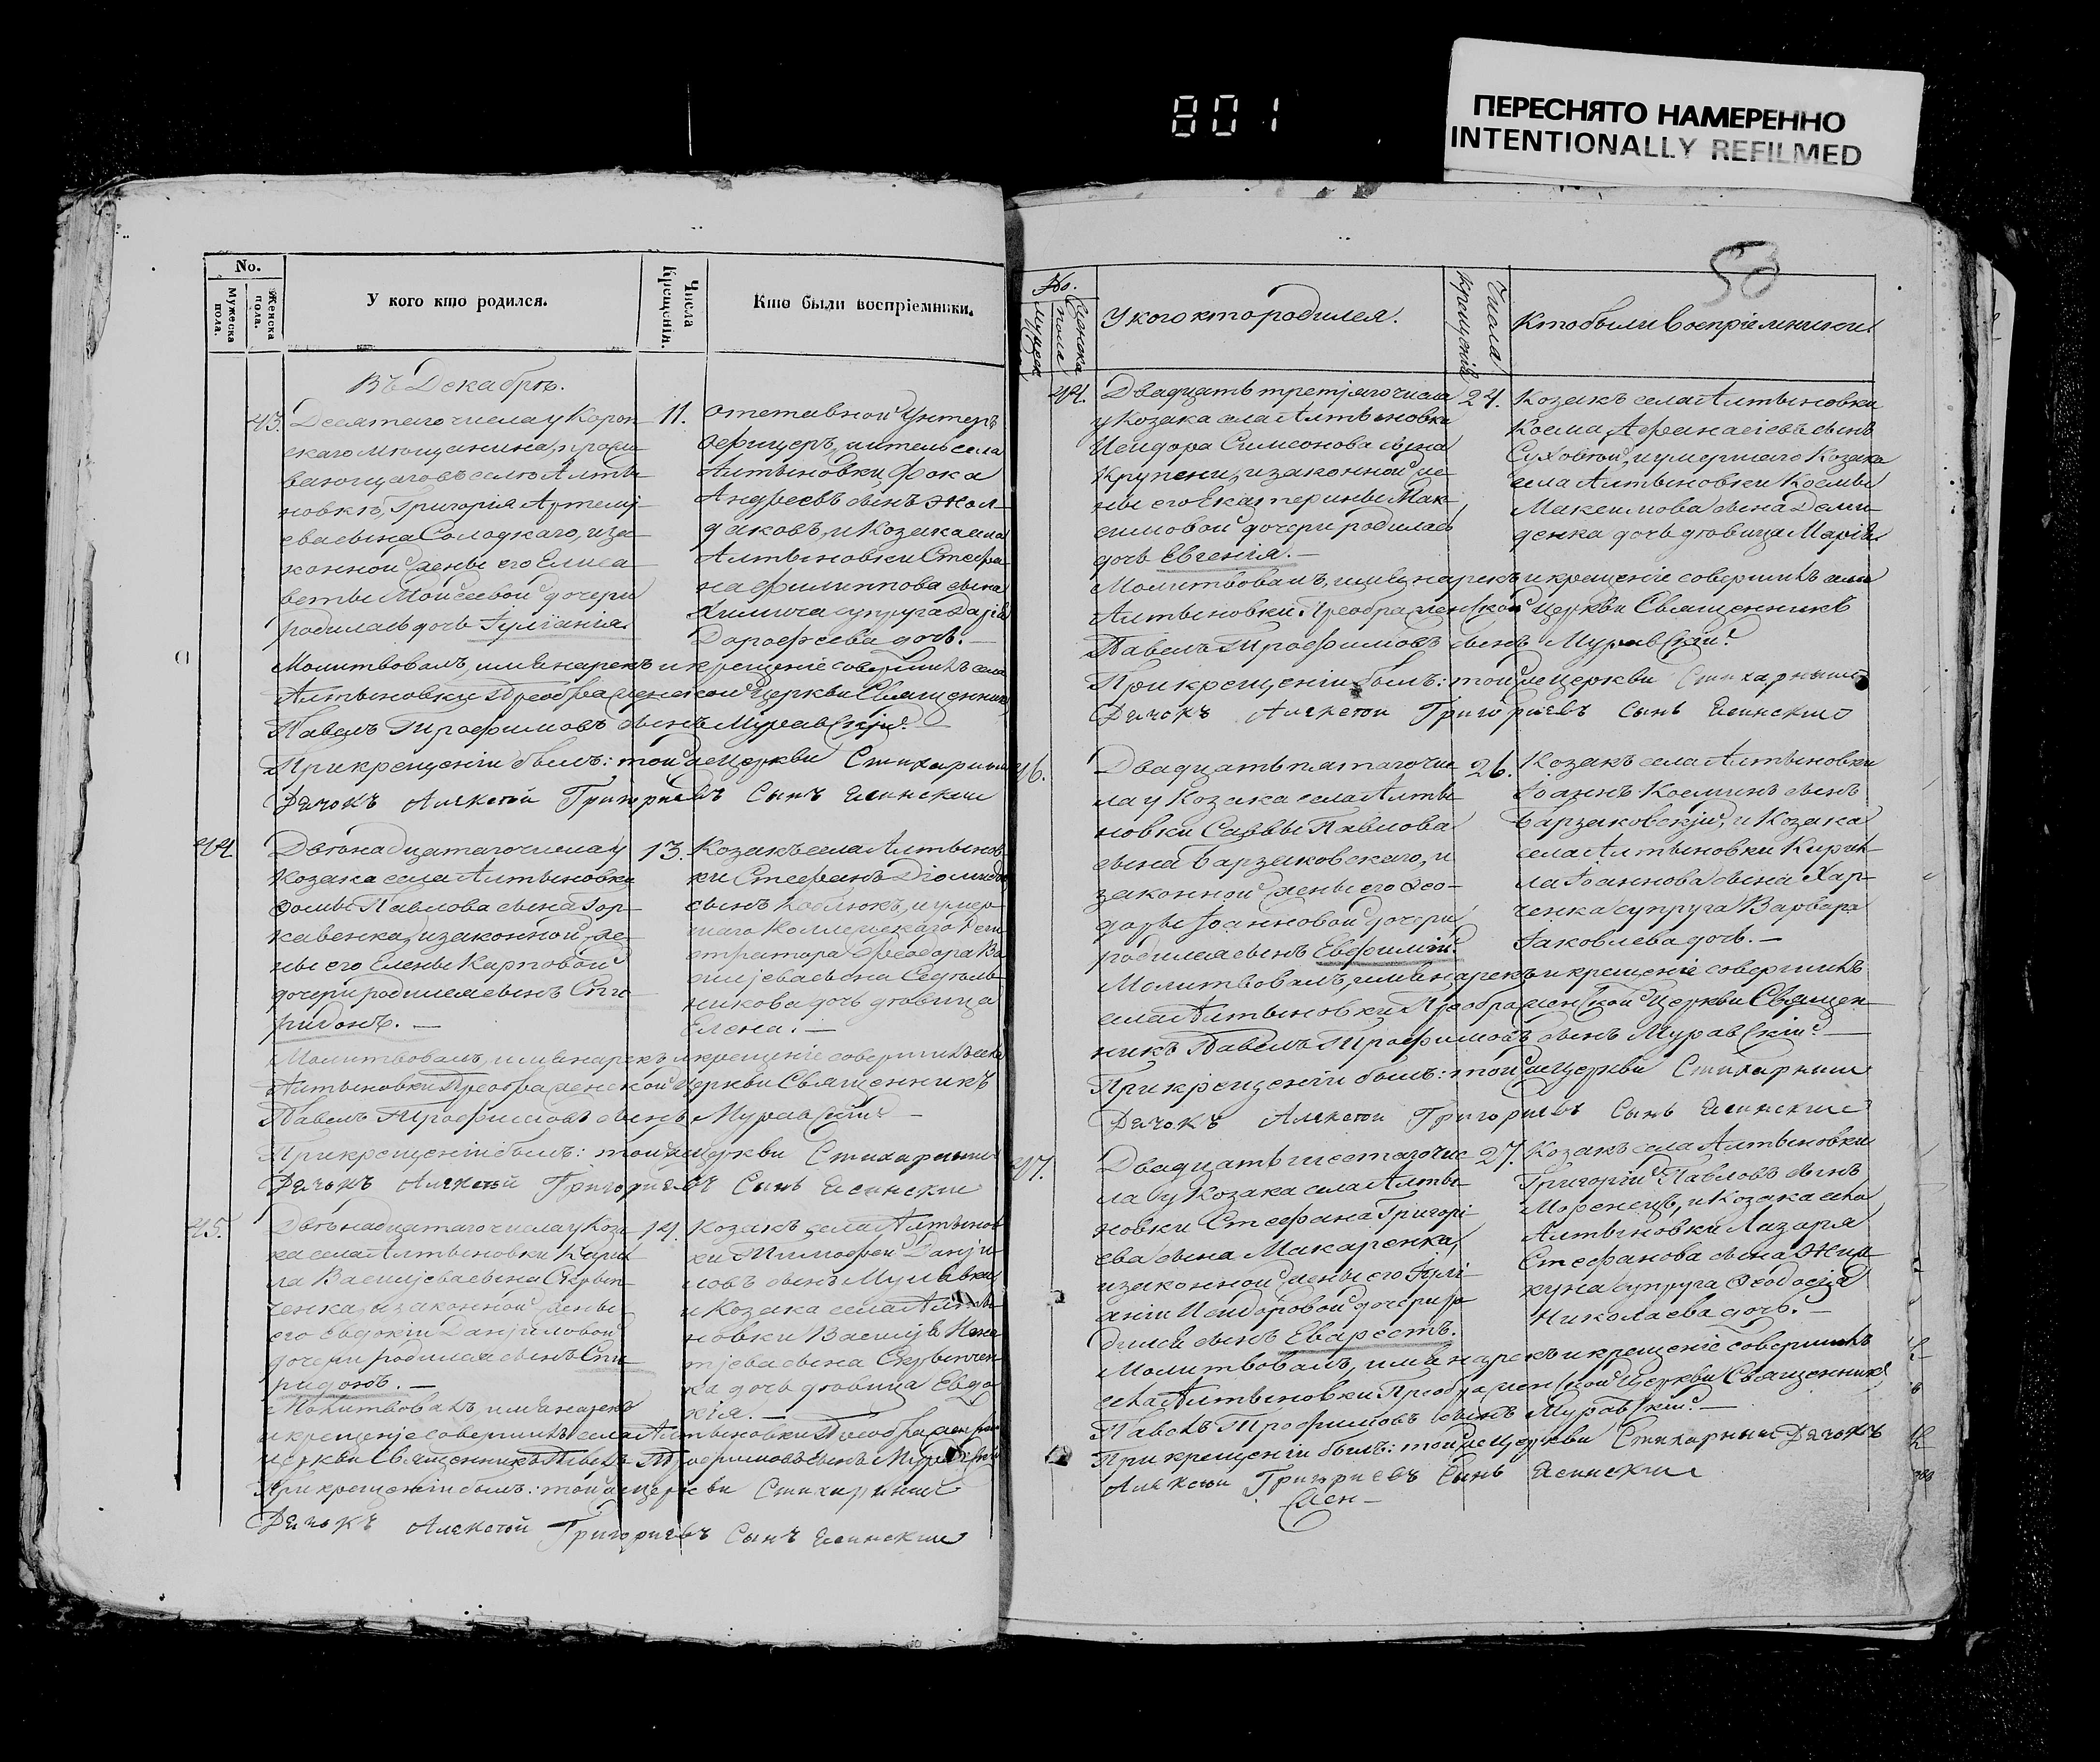 801
ПЕРЕСНЯТО НАМЕРЕННО
INTENTIONALLY REFILMED
No.
Мужеска пола.
Женска пола.
У кого кто родился.
Числа Крещенія.
Кто были воспріемники.
Въ Декабрѣ.
43.
Десятаго числа у Короп
скаго мещанина, прожи
вающаго въ селѣ Алты
новкѣ, Григорія Артемі
ева сына Солодкаго, и за
конной жены его Елиса
веты Моисеевой дочери
родилась дочь Іуліанія.
11.
Отставной Унтеръ
Офицеръ, житель села
Алтыновки Фока
Андреевъ сынъ Жол
даковъ, и Козака села
Алтыновки Стефа
на Филиппова сына
Химича супруга Дарія
Дорофеева дочь. —
Молитвовалъ, имя нарекъ и крещеніе совершилъ села
Алтыновки Преображенской Церкви Священникъ
Павелъ Трофимовъ сынъ Муравскій. —
При крещеніи былъ: той же Церкви Стихарный
Дячокъ Алексѣй Григорьевъ Сынъ Ясинскій
44
Двѣнадцатаго числа у
Козака села Алтыновки
Фомы Павлова сына Гор
кавенка, и законной же
ны его Елены Карповой
дочери родился сынъ Спи
ридонъ. —
13.
Козакъ села Алтынов
ки Стефанъ Діомидов
сынъ Коблюкъ, и умер
шаго Коллежскаго Реги
стратора Феодора Ва
силіева сына Седоль
никова дочь дѣвица
Елена. —
Молитвовалъ, имя нарекъ и крещеніе совершилъ села
Алтыновки Преображенской Церкви Священникъ
Павелъ Трофимовъ сынъ Муравскій. —
При крещеніи былъ: той же Церкви Стихарный
Дячокъ Алексѣй Григорьевъ Сынъ Ясинскій
45.
Двѣнадцатаго числа у Коза
ка села Алтыновки Кирил
ла Василіева сына Скрып
ченка, и законной жены
его Евдокіи Даніиловой
дочери родился сынъ Спи
ридонъ. —
14.
Козакъ села Алтынов
ки Тимофей Даніи
ловъ сынъ Мулявка
и Козака села Алты
новки Василія Игна
тіева сына Скрыпчен
ка дочь дѣвица Евдо
кія. —
Молитвовалъ, имя нарекъ
и крещеніе совершилъ села Алтыновки Преображенской
Церкви Священникъ Павелъ Трофимовъ сынъ Муравскій
При крещеніи былъ: той же Церкви Стихарный
Дячокъ Алексѣй Григорьевъ Сынъ Ясинскій
53
No.
Мужеск
Женска
пола
У кого кто родился.
Числа
Крещенія
Кто были Воспріемники
44.
Двадцать третіяго числа
у Козака села Алтыновки
Исидора Симеонова сына
Крупени, и законной же
ны его Екатерины Мак
симовой дочери родилась
дочь Евгенія. —
24.
Козакъ села Алтыновки
Косма Афанасіевъ сынъ
Суховѣй, и умершаго Козака
села Алтыновки Космы
Максимова сына Деми
денка дочь дѣвица Марія
Молитвовалъ, имя нарекъ и крещеніе совершилъ села
Алтыновки Преображенской Церкви Священникъ
Павелъ Трофимовъ сынъ Муравскій.
При крещеніи былъ: той же Церкви Стихарный
Дячокъ Алексѣй Григорьевъ Сынъ Ясинскій
46.
Двадцать пятаго чис
ла у Козака села Алты
новки Саввы Павлова
сына Барзаковскаго, и
законной жены его Фео-
доры Іоанновой дочери
родился сынъ Евфимій.
26.
Козакъ села Алтыновки
Іоаннъ Косминъ сынъ
Барзаковскій, и Козака
села Алтыновки Кирил
ла Іоаннова сына Хар-
ченка супруга Варвара
Іаковлева дочь. —
Молитвовалъ, имя нарекъ и крещеніе совершилъ
села Алтыновки Преображенской Церкви Священ
никъ Павелъ Трофимовъ сынъ Муравскій. —
При крещеніи былъ: той же Церкви Стихарный
Дячокъ Алексѣй Григорьевъ Сынъ Ясинскій
47.
Двадцать шестаго чис
ла у Козака села Алты
новки Стефана Григорі
ева сына Макаренка,
и законной жены его Іулі
аніи Исидоровой дочери ро
дился сынъ Еварестъ.
27.
Козакъ села Алтыновки
Григорій Павловъ сынъ
Моренецъ, и Козака села
Алтыновки Лазаря
Стефанова сына Жим
куна супруга Феодосія
Николаева дочь. —
Молитвовалъ, имя нарекъ и крещеніе совершилъ
села Алтыновки Преображенской Церкви Священникъ
Павелъ Трофимовъ сынъ Муравскій. —
При крещеніи былъ: той же Церкви Стихарный Дячокъ
Алексѣй Григорьевъ Сынъ Ясинскій